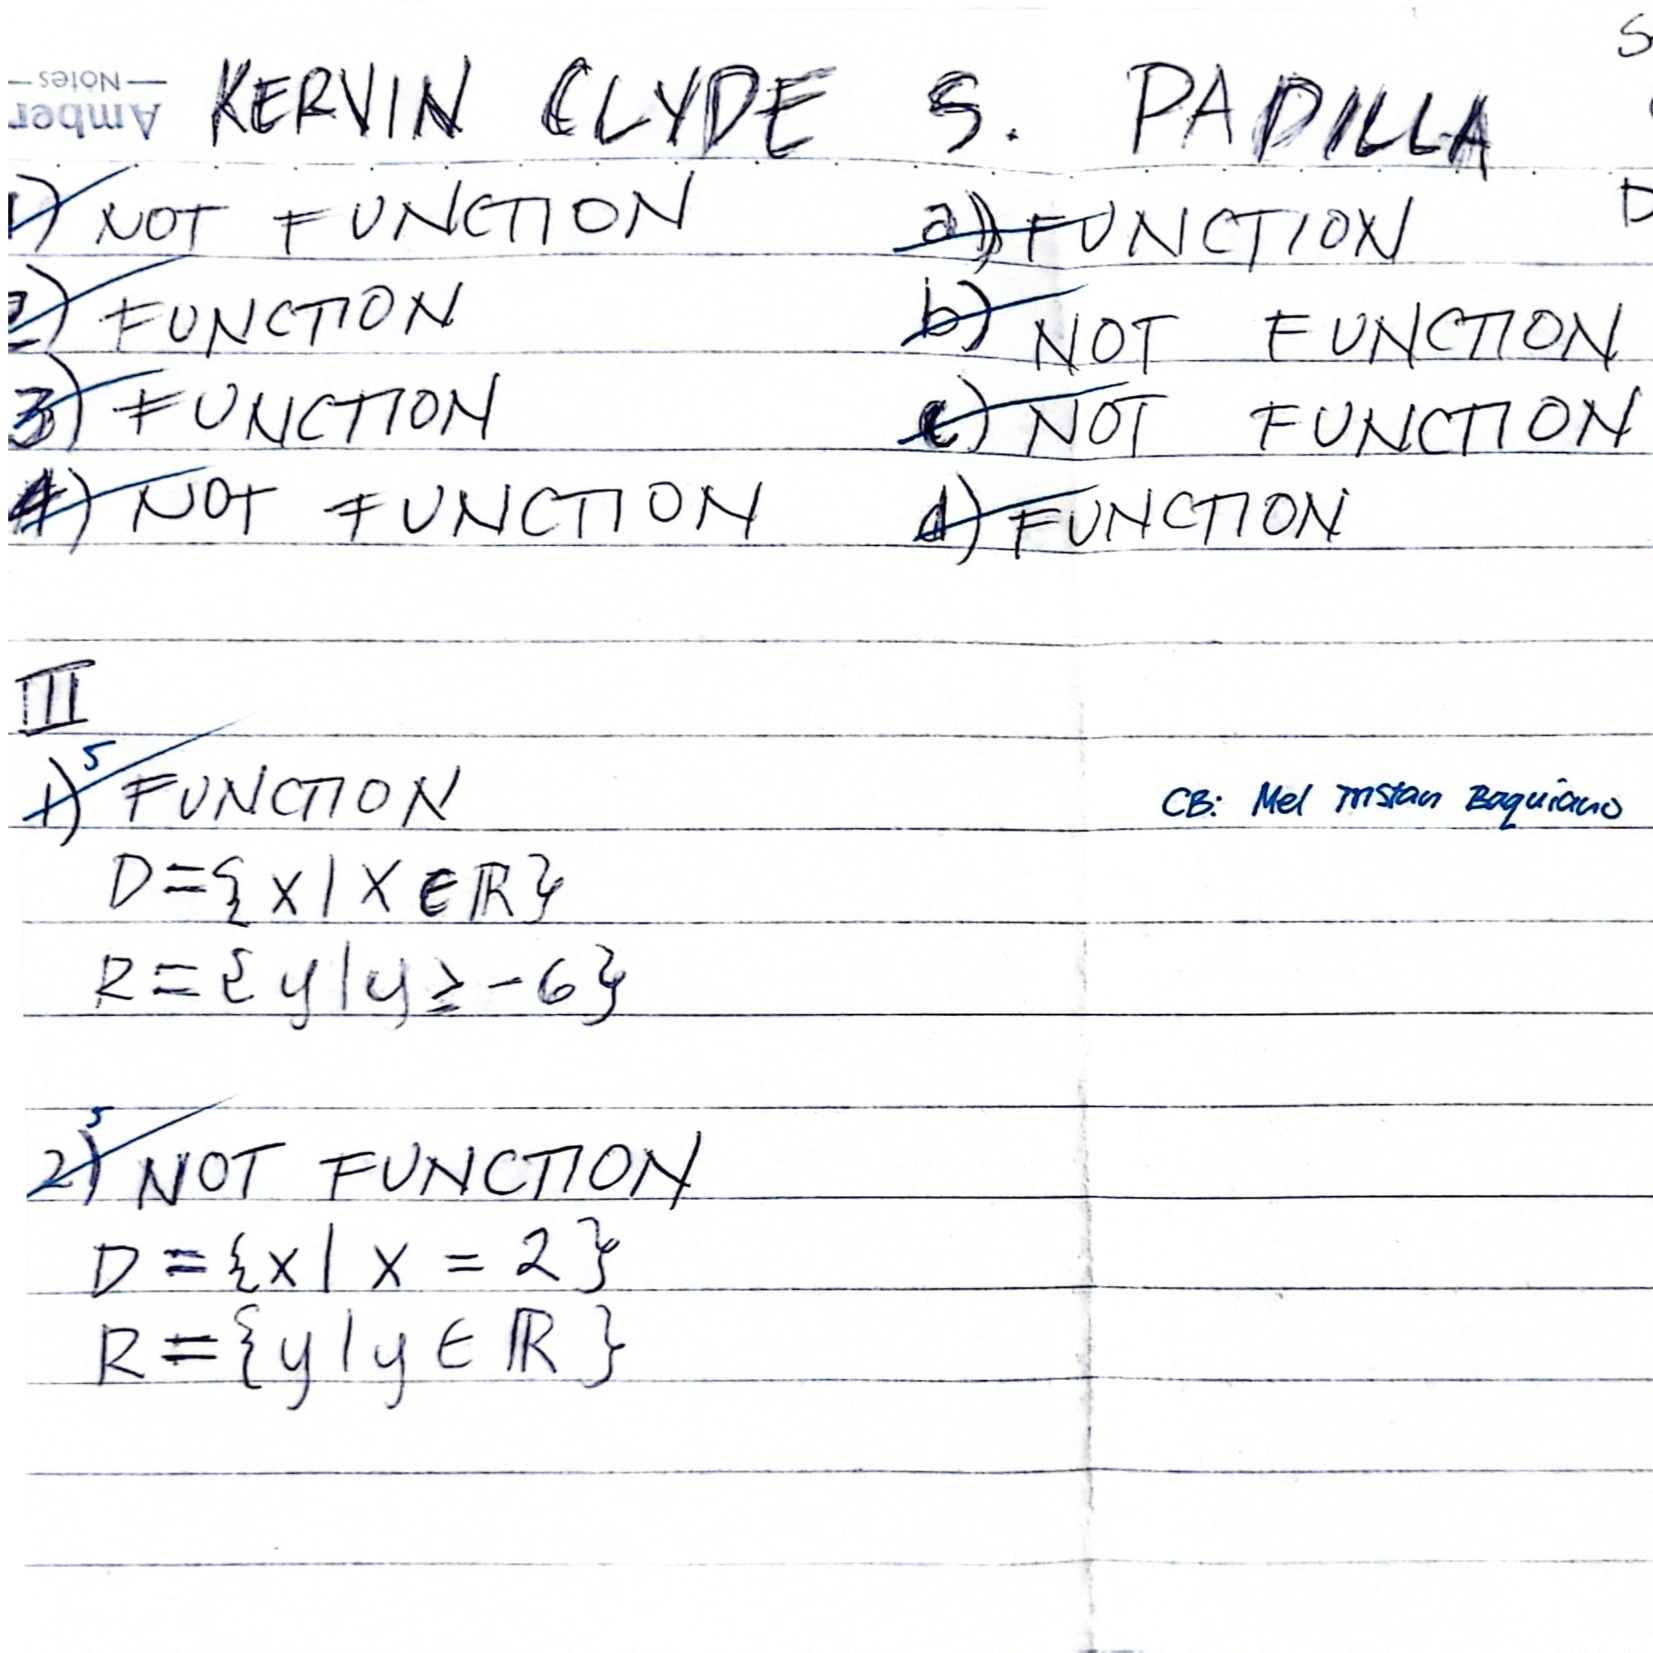 Amber
—Notes—
KERVIN CLYDE S. PADILLA
1) NOT FUNCTION
2) FUNCTION
3) FUNCTION
4) NOT FUNCTION
a) FUNCTION
b) NOT FUNCTION
c) NOT FUNCTION
d) FUNCTION
III
5
1) FUNCTION
D={x|x∈ℝ}
R={y|y≥-6}
CB: Mel Tristan Baquiano
5
2) NOT FUNCTION
D={x|x=2}
R={y|y∈ℝ}